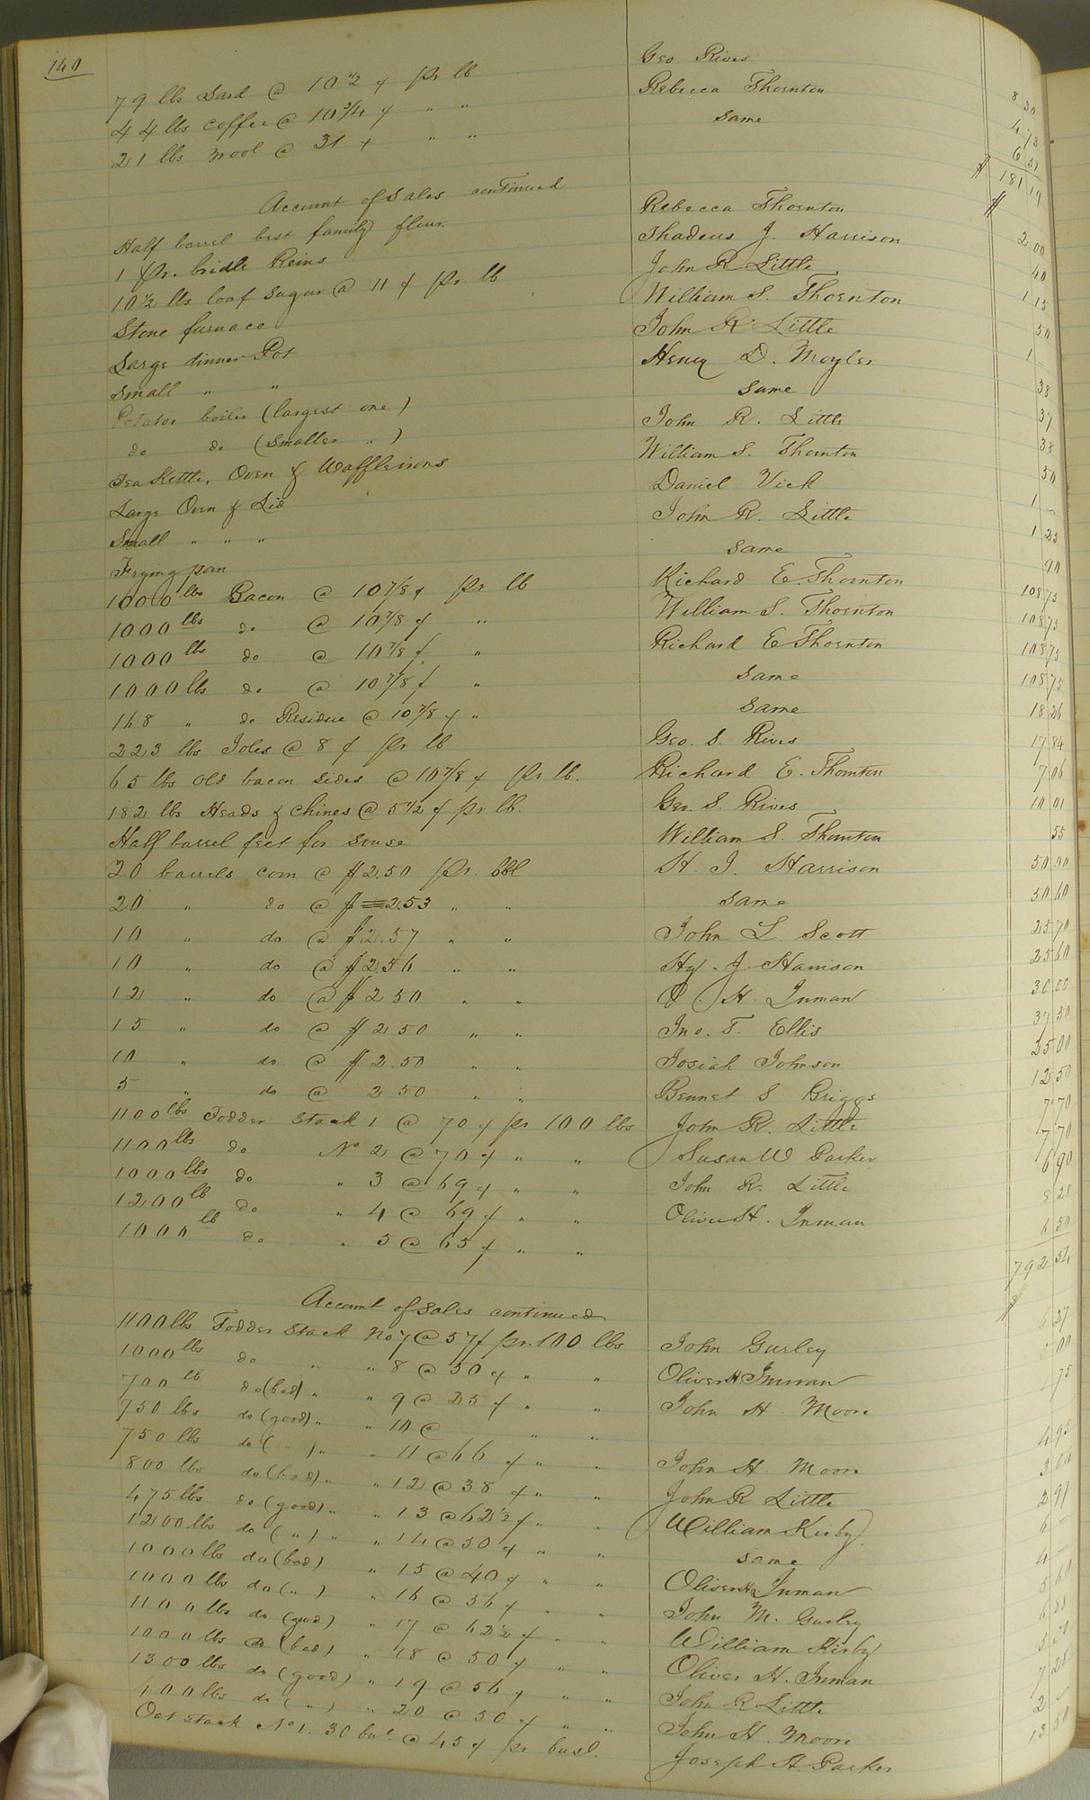 140
79 lbs Lard @ 10 1/2 ¢ pr lb Geo Rives 8 30
44 lbs coffee @ 10 3/4 ¢ " " Rebecca Thornton 4 73
21 lbs wool @ 31 ¢ " " same 6 51
$ 181 19
Account of Sales continued $
Half barrel best family flour Rebecca Thornton 2 00
1 pr. bridle Reins Thadeus J. Harrison 40
10 1/2 lbs loaf Sugar @ 11 ¢ pr lb John R Little 1 15
Stone furnace William S. Thornton 50
Large dinner Pot John R Little 1 —
Small " " Henry D. Moyler 38
Potatoe boiler (largest one) same 37
do do (Smaller ") John R. Little 38
Tea Kettle, Oven & Waffleirons William S. Thornton 50
Large Oven & Lid Daniel Vick 1 —
Small " " " John R. Little 1 25
Frying pan same
1000 lbs Bacon @ 10 7/8 ¢ pr lb Richard E. Thornton 108 75
1000 lbs do @ 10 7/8 ¢ " William S. Thornton 108 75
1000 lbs do @ 10 7/8 ¢ " Richard E Thornton 108 75
1000 lbs do @ 10 7/8 ¢ " same 108 75
168 " do Residue @ 10 7/8 ¢ " same 18 26
223 lbs Joles @ 8 ¢ pr lb Geo. S. Rives 17 84
65 lbs old bacon sides @ 10 7/8 ¢ pr lb. Richard E. Thornton 7 06
182 lbs Heads & Chines @ 5 1/2 ¢ pr lb. Geo. S. Rives 10 01
Half barrel feet for Souse William S. Thornton 55
20 barrels corn @ $2.50 pr. bbl H. J. Harrison 50 00
20 " do @ $2.53 " " same 50 60
10 " do @ $2.57 " " John L. Scott 25 70
10 " do @ $2 56 " " Hy. J. Harrison 25 60
12 " do @ $2 50 " " O. H. Inman 30 00
15 " do @ $2 50 " " Jno. T. Ellis 37 50
10 " do @ $2.50 " " Josiah Johnson 25 00
5 " do @ 2 50 " " Bennet S Briggs 12 50
1100 lbs Fodder Stack 1 @ 70 ¢ pr 100 lbs John R. Little 7 70
1100 lbs do No 2 @ 70 ¢ " " Susan W Parker 7 70
1000 lbs do " 3 @ 69 ¢ " " John R. Little 6 90
1200 lb do " 4 @ 69 ¢ " " Oliver H. Inman 8 28
1000 lb do " 5 @ 65 ¢ " " 6 50
792 54
Account of Sales continued
1100 lbs Fodder Stack No 7 @ 57 ¢ pr. 100 lbs John Gurley 6 27
1000 lbs do " " 8 @ 50 ¢ " " Oliver H Inman 00
700 lb do (bad) " " 9 @ 25 ¢ " " John H. Moore 75
750 lbs do (good) " " 10 @ " "
750 lbs do ( " ) " " 11 @ 66 ¢ " " John H Moore 4 95
800 lbs do (bad) " " 12 @ 38 ¢ " " John R Little 3 04
475 lbs do (good) " " 13 @ 62 1/2 ¢ " " William Kirby 2 97
1200 lbs do ( " ) " " 14 @ 50 ¢ " " same 6 —
1000 lbs do (bad) " 15 @ 40 ¢ " " Oliver H Inman 4 —
1000 lbs do ( " ) " 16 @ 56 ¢ " " John M. Gurley 5 60
1100 lbs do (good) " 17 @ 62 1/2 ¢ " " William Kirby 6 88
1000 lbs do (bad) " 18 @ 50 ¢ " " Oliver H. Inman 5 00
1300 lbs do (good) " 19 @ 56 ¢ " " John R Little 7 28
400 lbs do ( " ) " 20 @ 50 ¢ " " John H. Moore 2 —
Oat Stack No 1. 30 bul. @ 45 ¢ pr busl. Joseph H. Parker 13 50